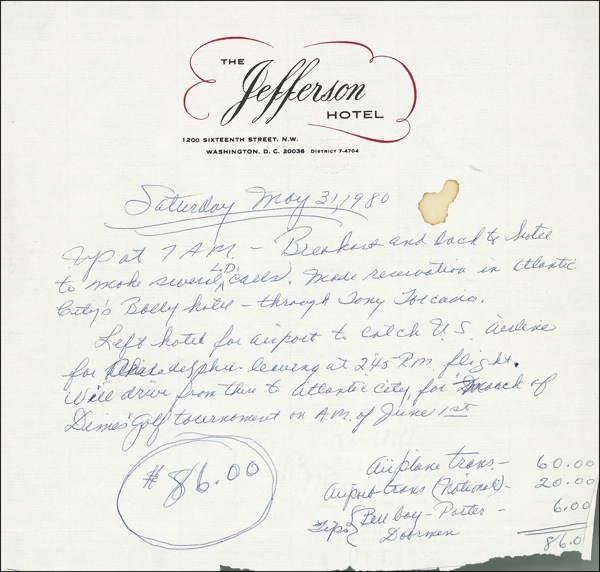 THE
Jefferson
HOTEL
1200 SIXTEENTH STREET, N.W.
WASHINGTON, D. C. 20036 DISTRICT 7-4704
Saturday May 31, 1980
Up at 7 A.M. – Breakfast and back to hotel
to make several L.D. calls. Made reservation in Atlantic
City's Bally hotel – through Tony Torcasio.
Left hotel for airport to catch U.S. airline
for Philadelphia – leaving at 2:45 P.M. flight.
Will drive from there to Atlantic City, for March of
Dimes' Golf tournament on A.M. of June 1st
$86.00
Airplane trans – 60.00
Airport trans (National) – 20.00
Tips { Bell boy – Porter – 6.00
Doormen
86.0